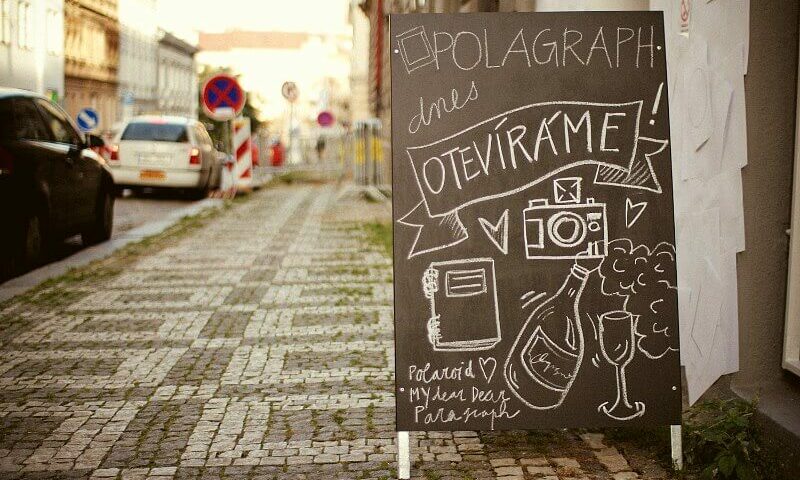 POLAGRAPH
dnes
OTEVÍRÁME!
Polaroid
MY dear Dear
Paragraph